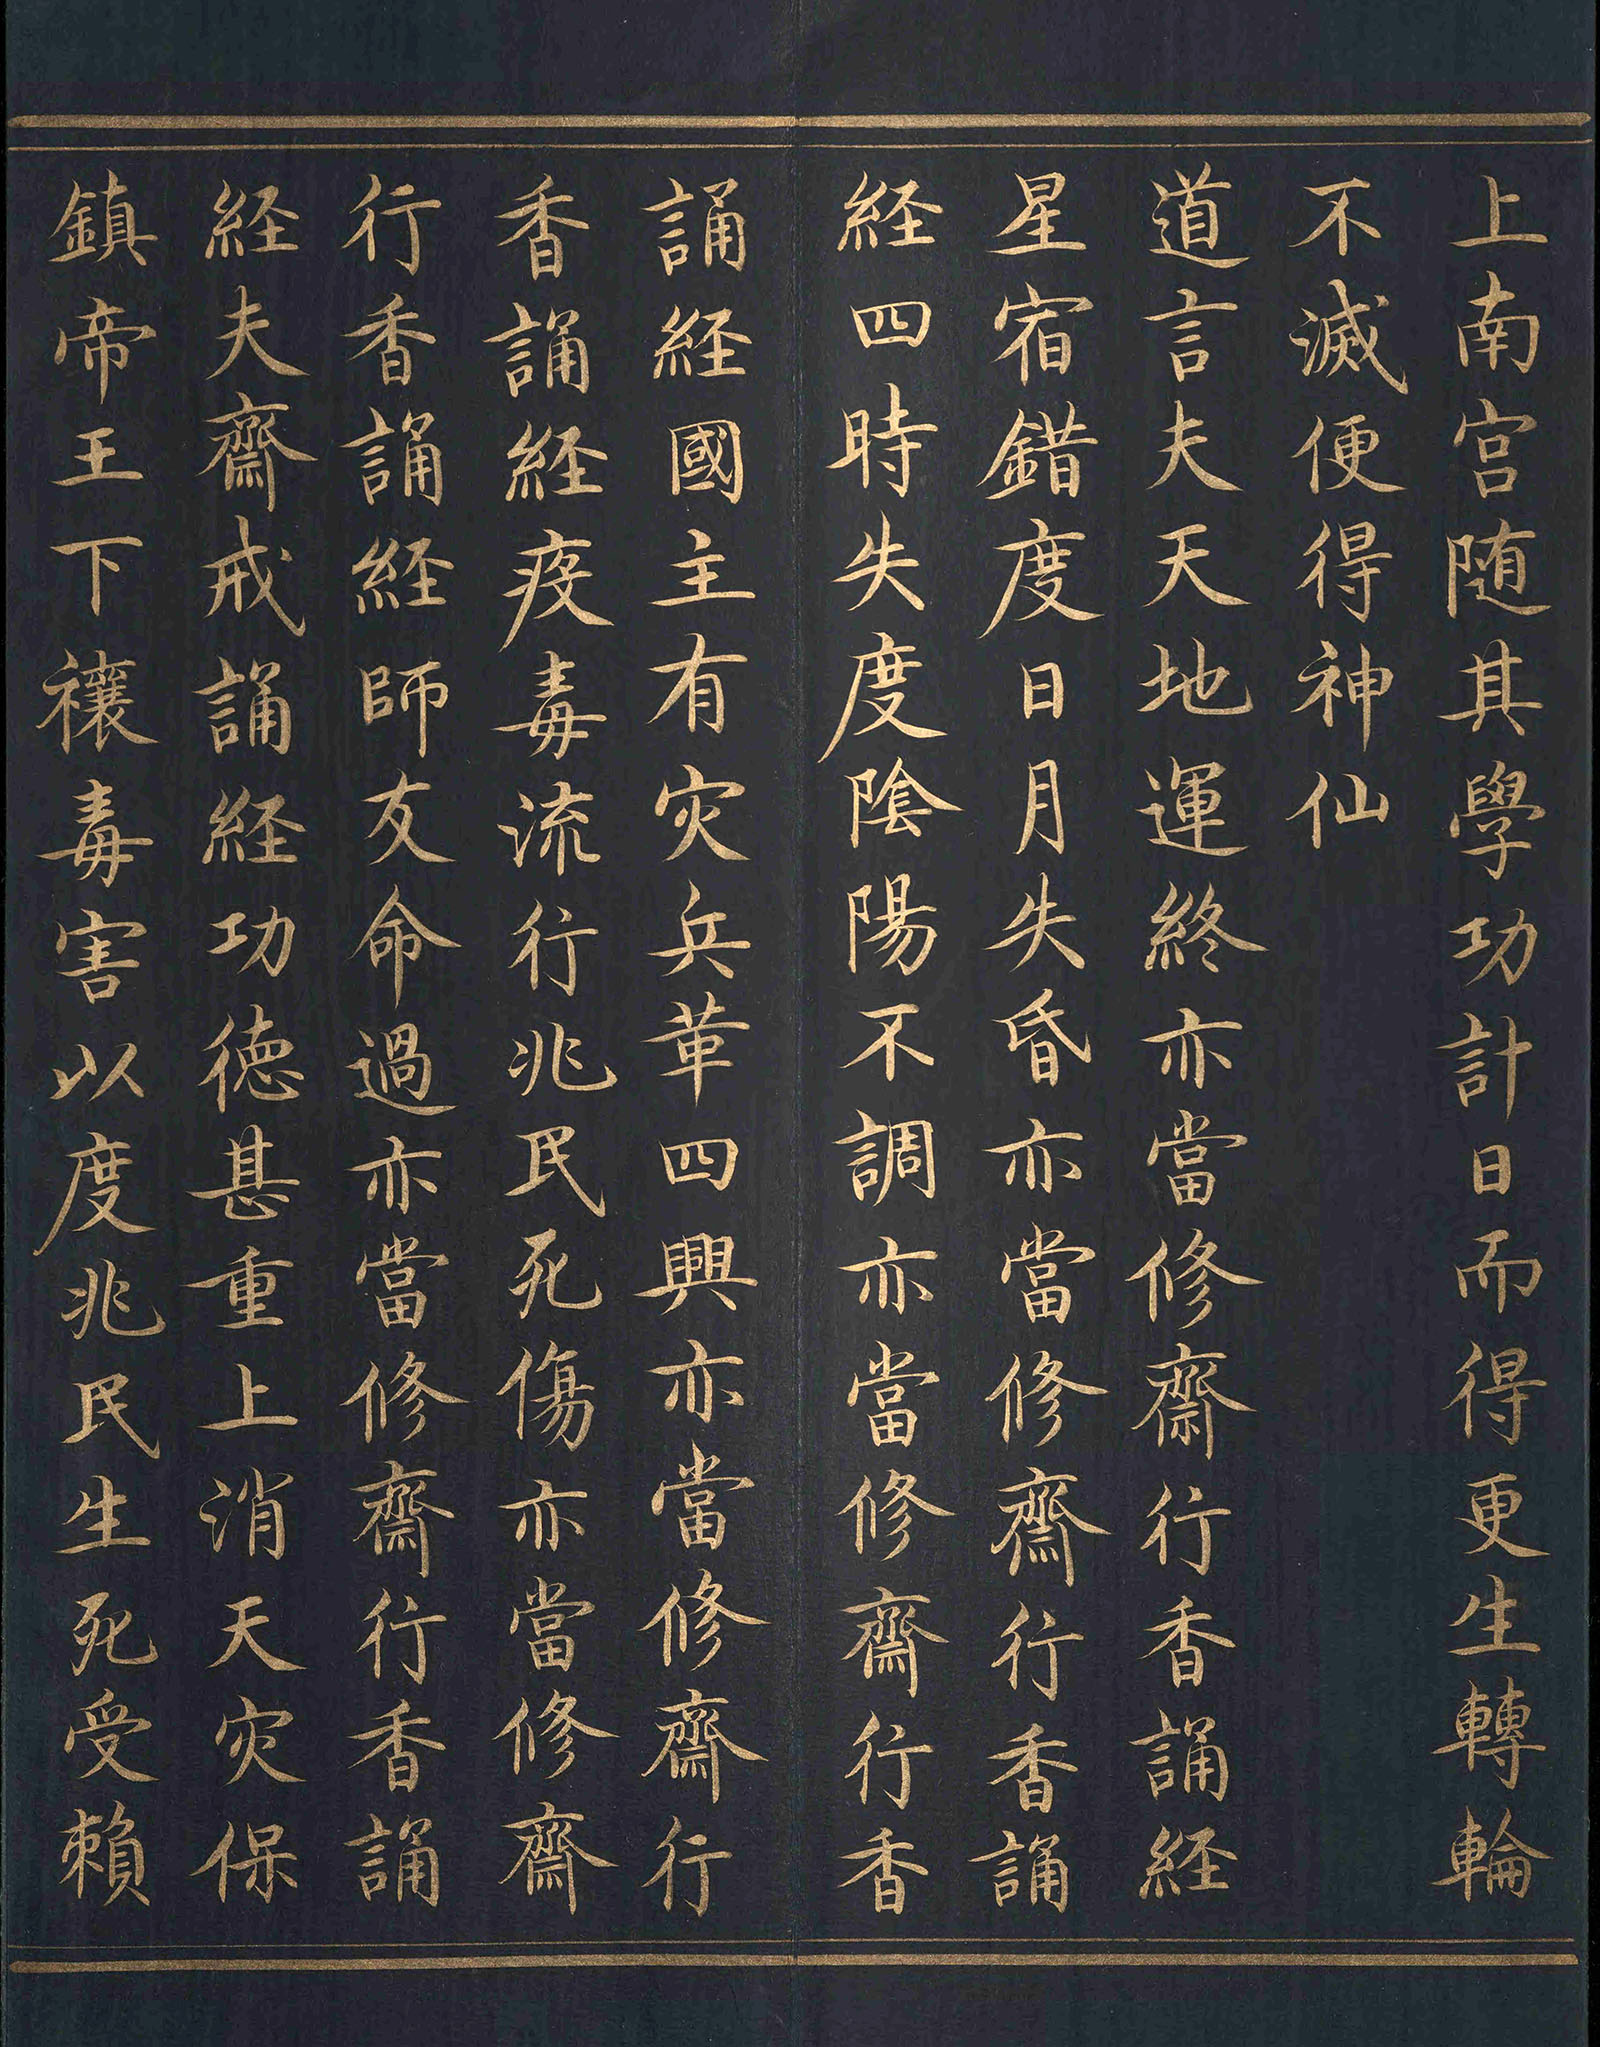 上南宮随其學功計日而得更生轉輪
不滅便得神仙
道言夫天地運終亦當修齋行香誦経
星宿錯度日月失昏亦當修齋行香誦
経四時失度陰陽不調亦當修齋行香
誦経國主有灾兵革四興亦當修齋行
香誦経疫毒流行兆民死傷亦當修齋
行香誦経師友命過亦當修齋行香誦
経夫齋戒誦経功徳甚重上消天灾保
鎮帝王下禳毒害以度兆民生死受賴